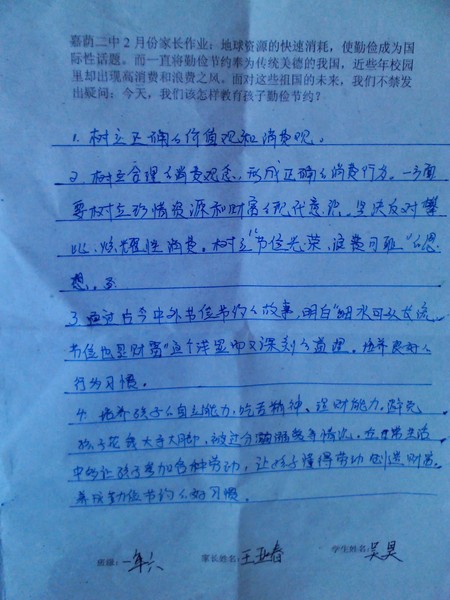 嘉荫二中2月份家长作业：地球资源的快速消耗，使勤俭成为国
际性话题。而一直将勤俭节约奉为传统美德的我国，近些年校园
里却出现高消费和浪费之风。面对这些祖国的未来，我们不禁发
出疑问：今天，我们该怎样教育孩子勤俭节约？
1. 树立正确的价值观和消费观。
2. 树立合理的消费观念，形成正确的消费行为。一方面
要树立珍惜资源和财富的现代意识，坚决反对攀
比、炫耀性消费。树立"节俭光荣、浪费可耻"的思
想。
3. 通过古今中外节俭节约的故事，明白"细水可以长流，
节俭也是财富"这个浅显而又深刻的道理。培养良好的
行为习惯。
4. 培养孩子的自立能力，吃苦精神、理财能力。避免
孩子花钱大手大脚，被过分溺爱等情况，在日常生活
中多让孩子参加各种劳动，让孩子懂得劳动创造财富。
养成勤俭节约的好习惯。
班级：一年六 家长姓名：王亚春 学生姓名：吴昊